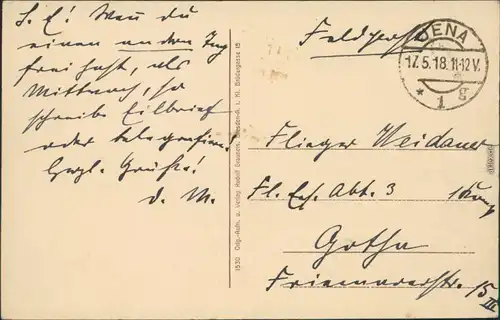 L. E.! Wenn du
einen andern Tag
frei hast, als
Mittwoch, so
schreibe Eilbrief
oder telegrafiere!
Herzl. Grüße!
d. M.
1930 Orig.-Aufn. u. Verlag Rudolf
Feldpost
JENA
17.5.18. 11-12 V.
* 1 g
Flieger Weidauer
Fl. Ers. Abt. 3
Gotha
Friemarerstr. 15
III